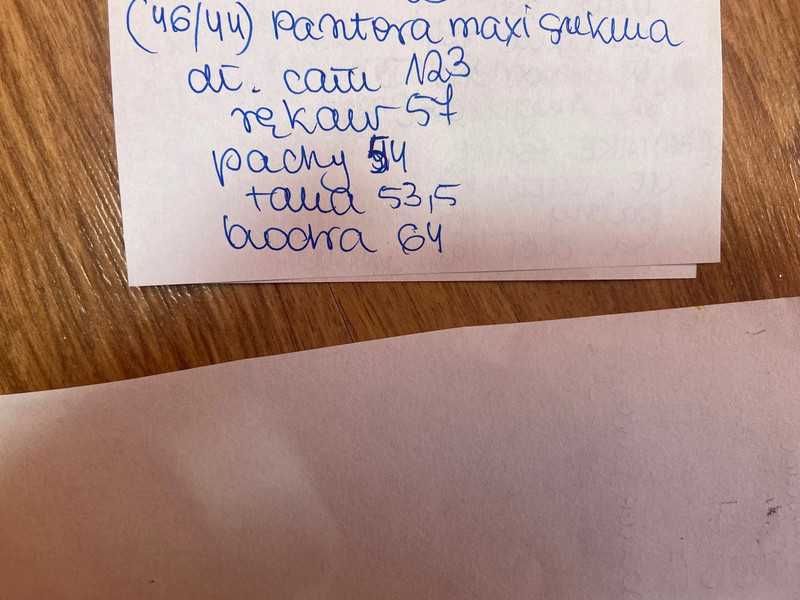 (46/44) pantora maxi sukma
dł. cału 123
rękaw 57
pachy 54
talia 53,5
biodra 64